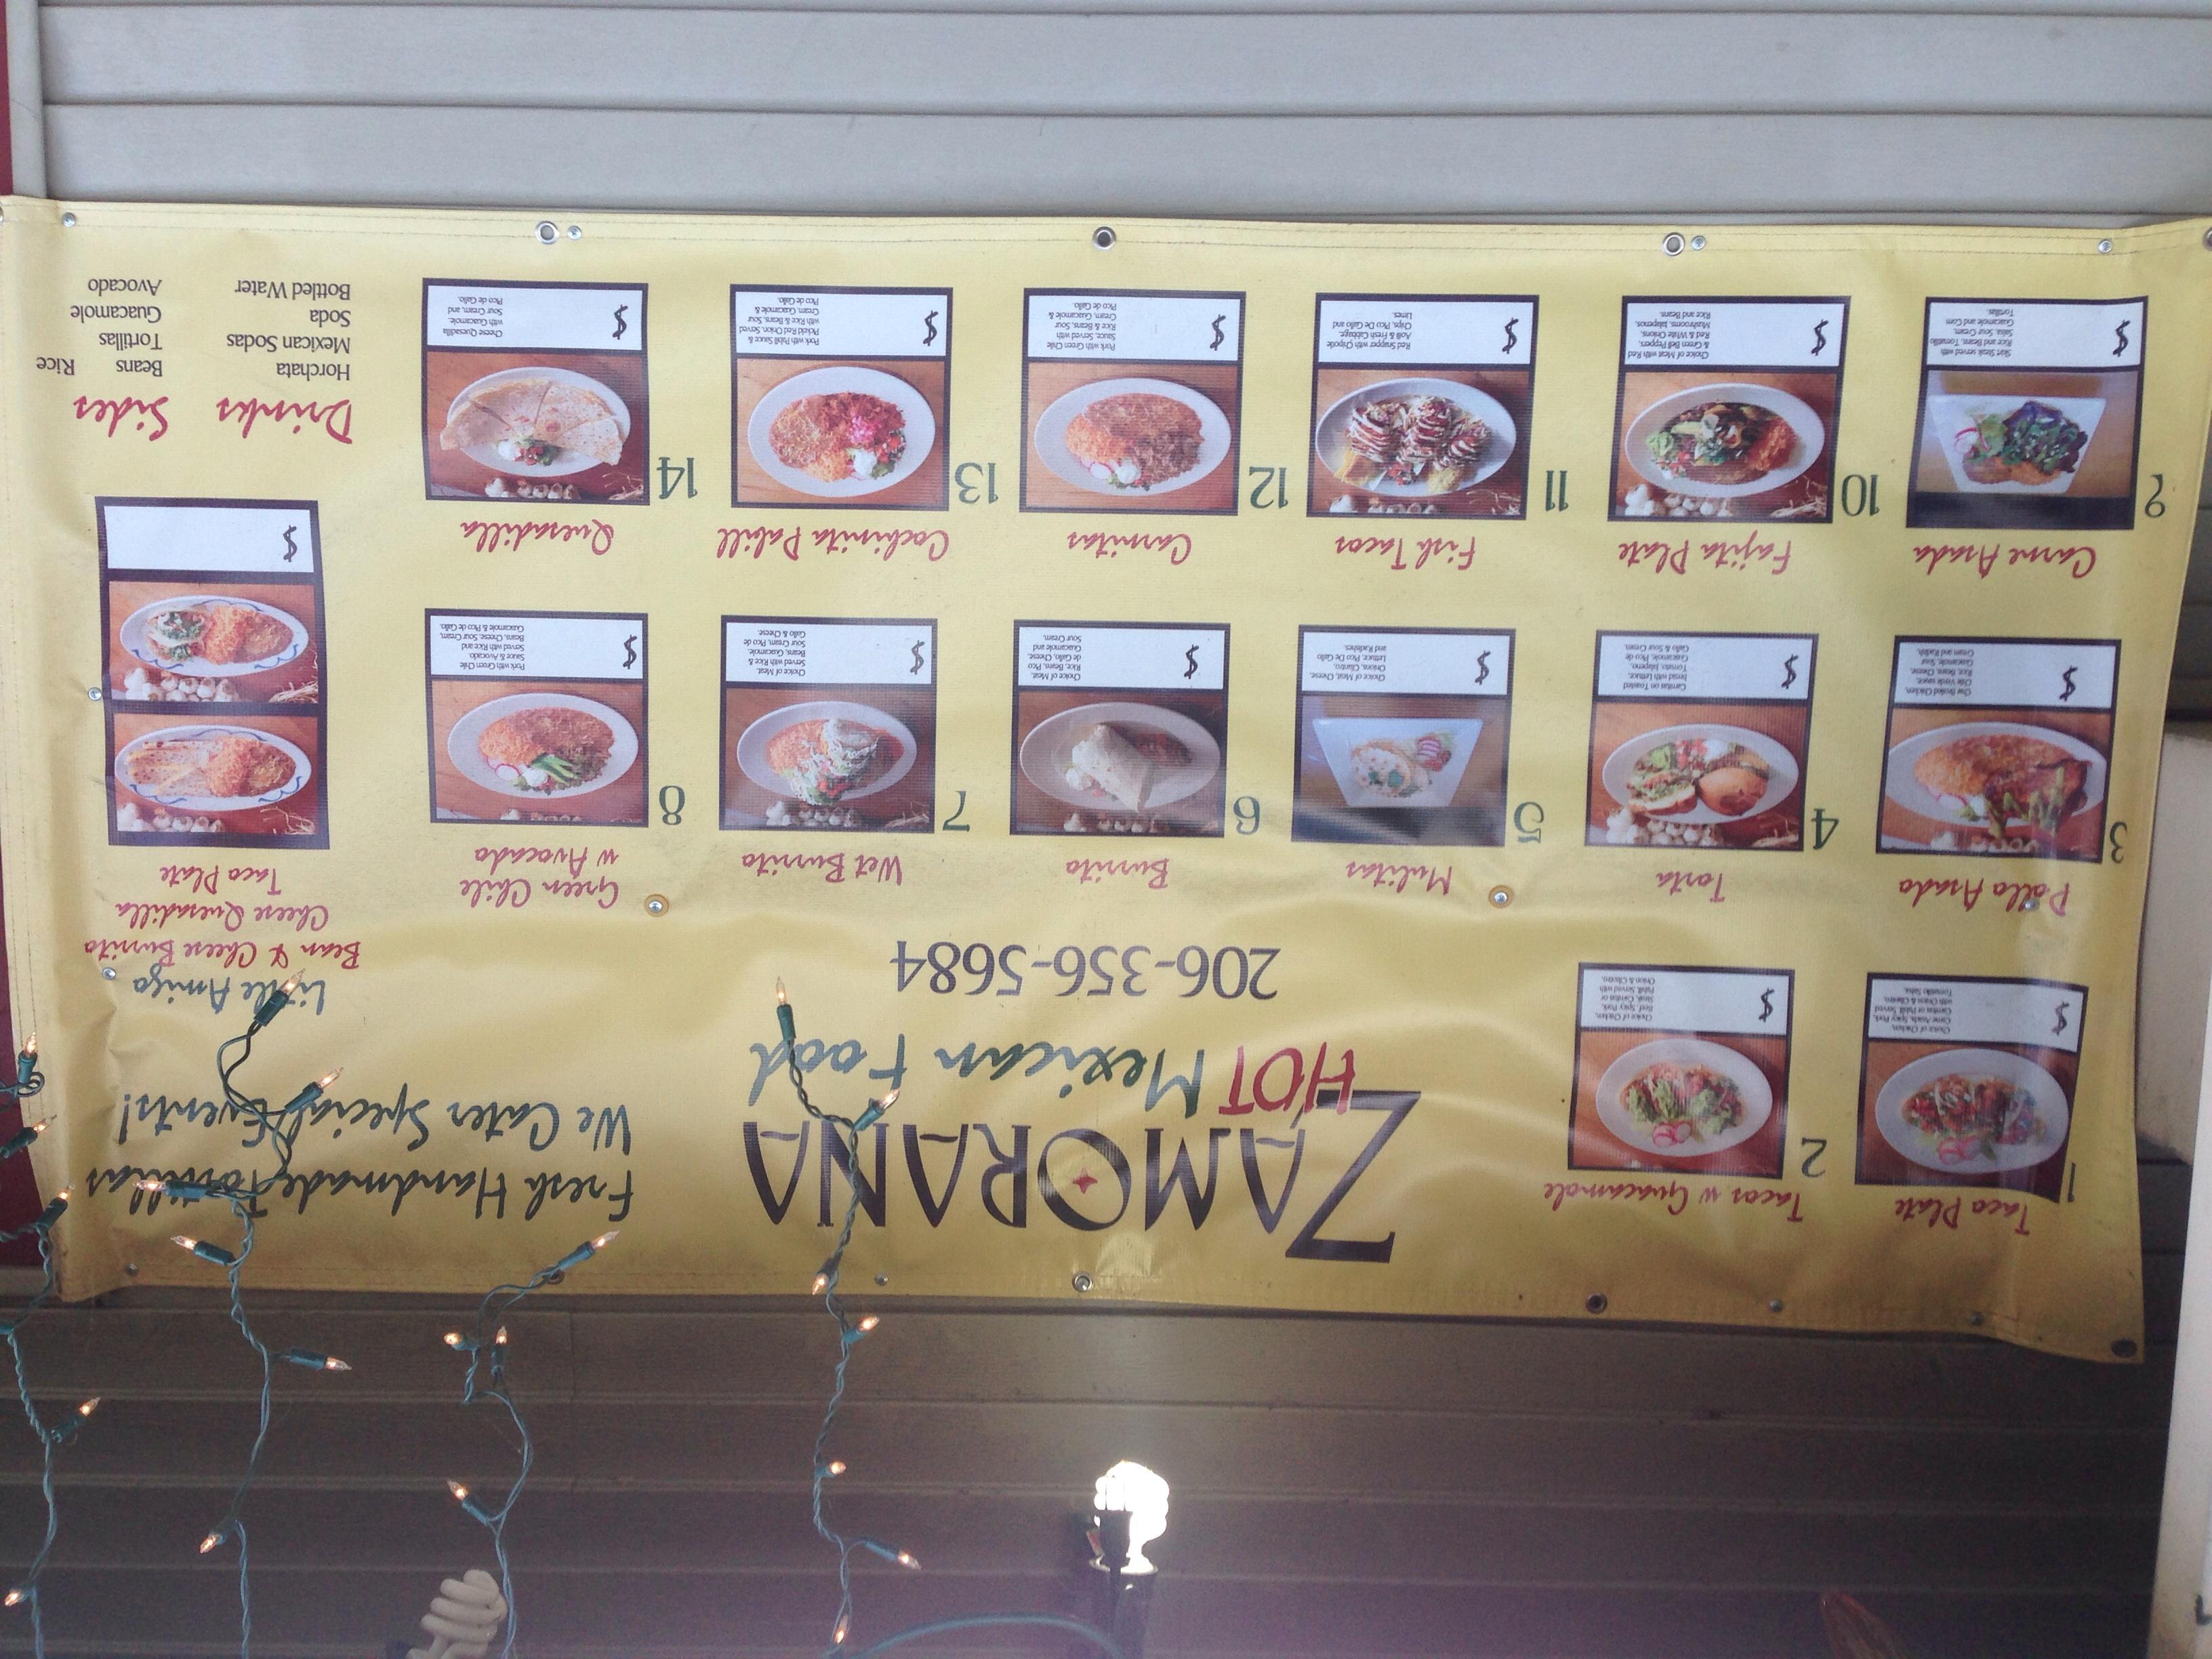 Taco Plate
1
Choice of Chicken,
Carne Asada, Spicy Pork,
Carnitas or Pabill. Served
with Onion & Cilantro,
Tomatillo Salsa.
$
Tacos w Guacamole
2
Choice of Chicken,
Beef, Spicy Pork,
Steak, Carnitas or
Pabill. Served with
Onion & Cilantro.
$
ZAMORANA
HOT Mexican Food
206-356-5684
Fresh Handmade Tortillas
We Cater Special Events!
Little Amigo
Bean & Cheese Burrito
Cheese Quesadilla
Taco Plate
$
Pollo Asado
3
Char Broiled Chicken,
Chile Verde sauce,
Rice, Beans, Cheese,
Guacamole, Sour
Cream and Radish.
$
Torta
4
Carnitas on Toasted
bread with Lettuce,
Tomato, Jalapeno,
Guacamole, Pico de
Gallo & Sour Cream.
$
Mulitas
5
Choice of Meat, Cheese,
Onions, Cilantro,
Lettuce, Pico De Gallo
and Radishes.
$
Burrito
6
Choice of Meat,
Rice, Beans, Pico
de Gallo, Cheese,
Guacamole and
Sour Cream.
$
Wet Burrito
7
Choice of Meat.
Served with Rice &
Beans, Guacamole,
Sour Cream, Pico de
Gallo & Cheese.
$
Green Chile
w Avocado
8
Pork with Green Chile
Sauce & Avocado.
Served with Rice and
Beans, Cheese, Sour Cream,
Guacamole & Pico de Gallo.
$
Carne Asada
9
Skirt Steak served with
Rice and Beans, Tomatillo
Salsa, Sour Cream,
Guacamole and Corn
Tortillas.
$
Fajita Plate
10
Choice of Meat with Red
& Green Bell Peppers,
Red & White Onions,
Mushrooms, Jalapenos,
Rice and Beans.
$
Fish Tacos
11
Red Snapper with Chipotle
Aoili & Fresh Cabbage,
Chips, Pico De Gallo and
Limes.
$
Carnitas
12
Pork with Green Chile
Sauce, Served with
Rice & Beans, Sour
Cream, Guacamole &
Pico de Gallo.
$
Cochinita Pabill
13
Pork with Pabill Sauce &
Pickled Red Onion, Served
with Rice & Beans, Sour
Cream, Guacamole &
Pico de Gallo.
$
Quesadilla
14
Cheese Quesadilla
with Guacamole,
Sour Cream, and
Pico de Gallo.
$
Drinks
Horchata
Mexican Sodas
Soda
Bottled Water
Sides
Beans Rice
Tortillas
Guacamole
Avocado